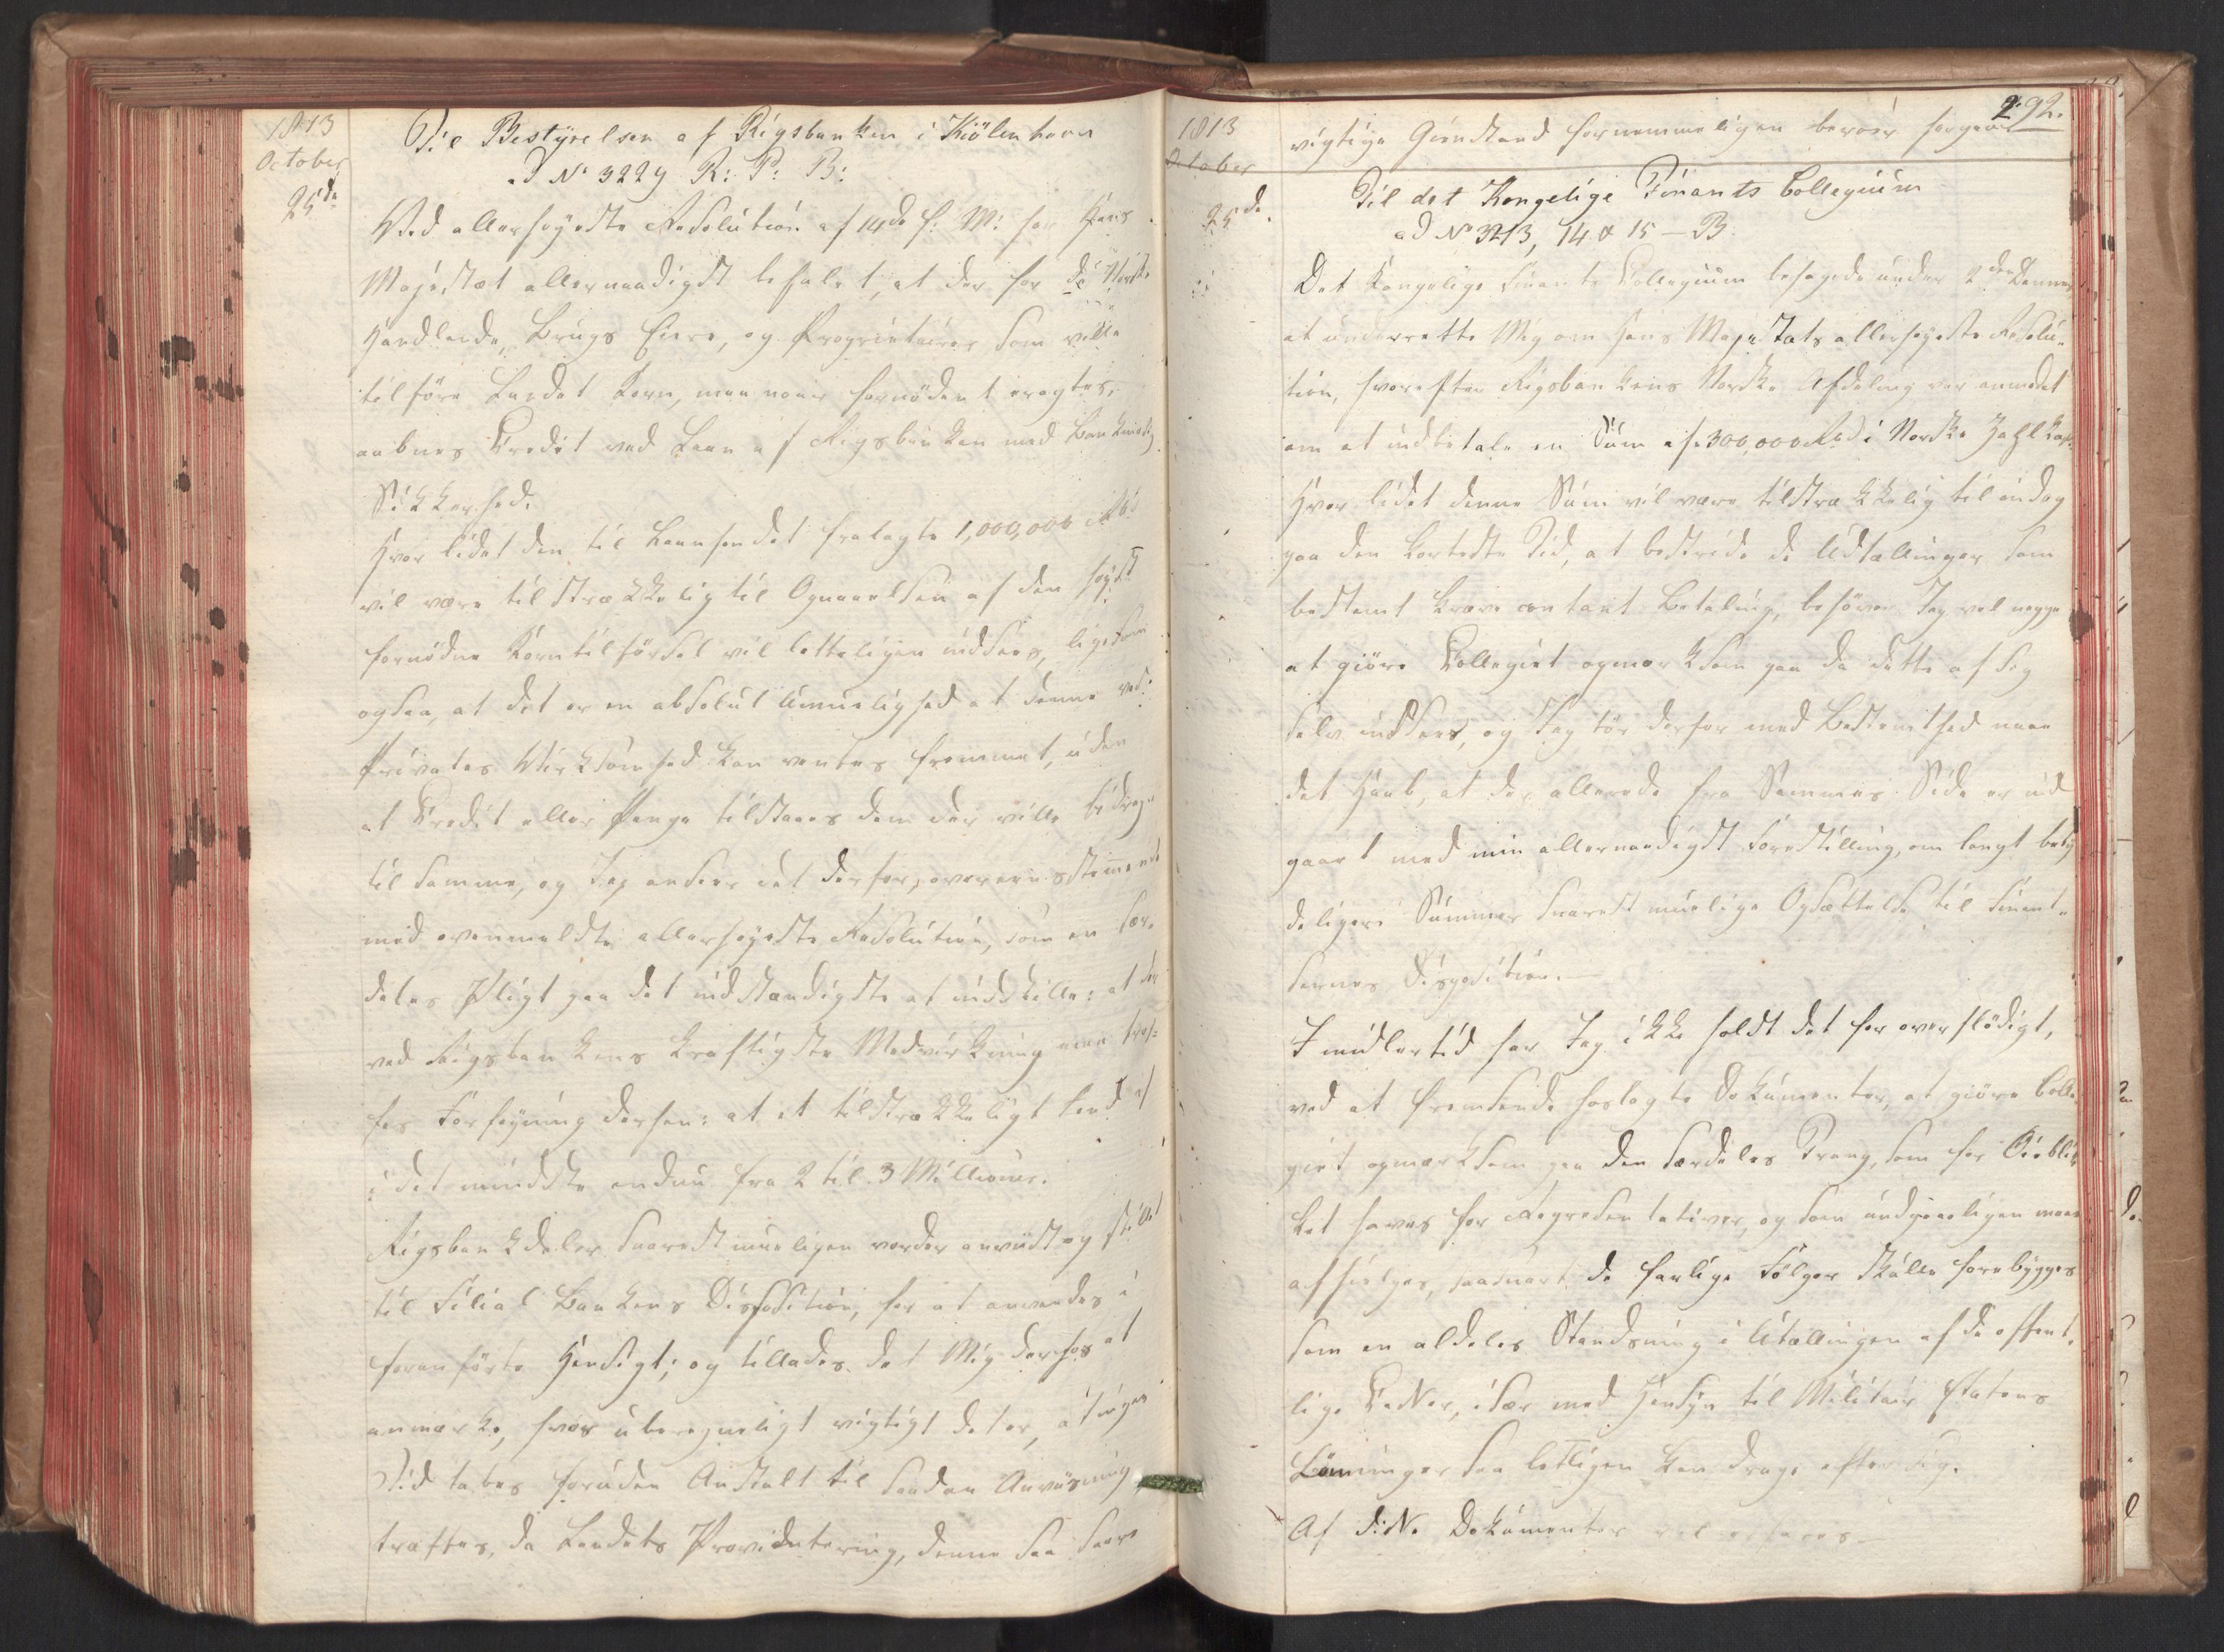 1813
October
25de
Til Bestyrelsen af Rigsbanken i Kiöbenhavn
ad No 3229 R: P: B:
Ved allerhøyeste Resolution af 14de f: M: har Hans
Majestæt allernaadigst befalet, at der for de Norske
Handlende, Brugs Eiere, og Proprietairer som ville
tilføre Landet Korn, men naar fornödent eragtes,
aabnes Credit ved Laan af Rigsbanken med Bankmæssig
Sikkerhed.
Hvor lidet den til Laanfondet fralagte 1,000,000 Rbd
vil være tilstrækkelig til Opnaaelsen af den høyst
fornødne Korntilførsel vil letteligen indsees, ligesom
ogsaa, at det er en absolut Umuelighed at denne ved
Privates Virksomhed kan ventes fremmet, uden
at Credit eller Penge tilstaaes dem der ville bidrage
til samme, og Jeg anseer det derfor, overeensstemmende
med ovenmeldte allerhøyeste Resolution, som en sær-
deles Pligt paa det indstændigste at indstille: at der
ved Rigsbankens kraftigste Medvirkning maa træf-
fes Forføyning derhen: at et tilstrækkeligt Fond af
i det mindste endnu fra 2 til 3 Millioner
Rigsbankdaler snarest mueligen vorder anviist og stillet
til Filial Bankens Disposition, for at anvendes i
foranførte Hensigt; og tillades det Mig derhos at
anmærke, hvor uberegneligt vigtigt det er, at ingen
Tid tabes foruden Anstalt til saadan Anviisning
træffes, da Landets Provideutering, denne saa saare
1813
October
25de
292.
vigtige Gienstand fornemmeligen beroer herpaa
Til det Kongelige Finants Collegium
ad No 3213, 14 & 15 - B.
Det Kongelige Finants Collegium behagede under 2den dennes
at underrette Mig om Hans Majestæts allerhøyeste Resolu-
tion, hvorefter Rigsbankens Norske Afdeling var anmodet
om at indbetale en Sum af 300,000 Rbd i Norske Zahlkas.
Hvor lidet denne Sum vil være tilstrækkelig til endog
paa den korteste Tid, at bestride de Udtællinger som
bestemt kræve contant Betaling, behøver Jeg vel neppe
at giøre Collegiet opmærksom paa da dette af sig
selv indsees, og Jeg tør derfor med Bestemthed nære
det Haab, at der allerede fra Sammes Side er ind-
gaaet med min allernaadigst Forestilling, om langt bety
deligere Summers snarest muelige Opsættelse til Finant-
sernes Disposition.
Imidlertid har Jeg ikke holdt det for overflødigt,
ved at fremsende hoslagte Dokumenter, at giøre Colle
giet opmærksom paa den særdeles Trang, som for Öieblik
ket haves for Repræsentativer, og som uundgaaeligen maae
afhielpes, saasnart de farlige Følger skulle forebygges
som en aldeles Standsning i Utællingen af de offent-
lige Casser, især med Hensyn til Militair Etatens
Lønninger saa letteligen kan drage efter sig.
Af d:N. Dokumenter